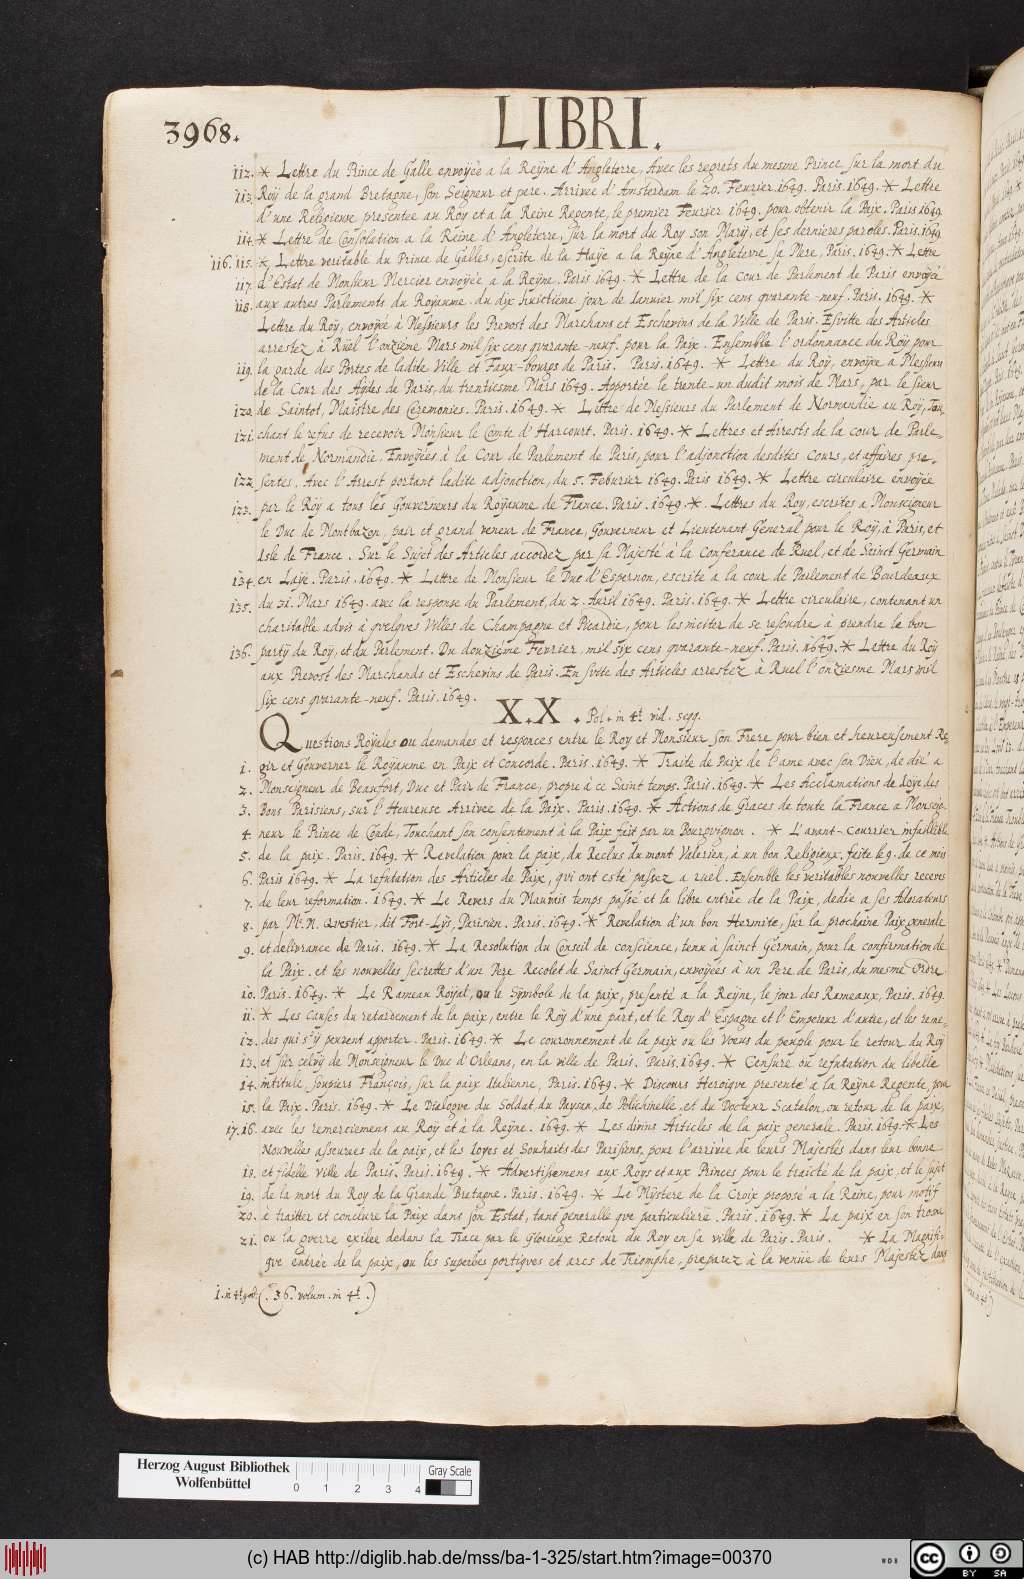 3968.
LIBRI.
112. * Lettre du Prince de Galle envoyée a la Reÿne d'Angleterre, Avec les regrets du mesme Prince sur la mort du
113. Roÿ de la grand Bretagne, son Seigneur et pere. Arrivée d'Amsterdam le 20. Feurier 1649. Paris. 1649. * Lettre
d'une Religieuse presentée au Roÿ et a la Reine Regente, le premier Feurier 1649. pour obtenir la Paix. Paris 1649.
114. * Lettre de Consolation a la Reine d'Angleterre, sur la mort du Roy son Marÿ, et ses dernieres paroles. Paris. 1649.
116. 115. * Lettre veritable du Prince de Galles, escrite de la Haÿe a la Reÿne d'Angleterre sa Mere, Paris. 1649. * Lettre
117. d'Estat de Monsieur Mercier envoyée a la Reÿne. Paris 1649. * Lettre de la Cour de Parlement de Paris envoyée
118. aux autres Parlements du Royaume. du dix huictiéme jour de Ianuier mil six cens quarante-neuf. Paris. 1649. *
Lettre du Roÿ, envoyée à Messieurs les Prevost des Marchans et Eschevins de la Ville de Paris. Ensuitte des Articles
arrestez à Rüel l'onzieme Mars mil six cens quarante-neuf. pour la Paix. Ensemble l'ordonnance du Roÿ pour
119. la garde des Portes de ladite Ville et Faux-bourgs de Paris. Paris. 1649. * Lettre du Roÿ, envoyée a Messieurs
de la Cour des Aydes de Paris, du trentiesme Mars 1649. Apportée le trente-un dudit mois de Mars, par le sieur
120. de Saintot, Maistre des Ceremonies. Paris. 1649. * Lettre de Messieurs du Parlement de Normandie au Roÿ, Tou
121. chant le refus de recevoir Monsieur le Comte d'Harcourt. Paris. 1649. * Lettres et Arrests de la cour de Parle-
ment de Normandie, Envoyées à la Cour de Parlement de Paris, pour l'adjonction desdites Cours, et affaires pre-
122. sentes. Avec l'Arrest portant ladite adjonction, du 5. Feburier 1649. Paris 1649. * Lettre circulaire envoyée
123. par le Roy a tous les Gouverneurs du Roÿaume de France. Paris. 1649. * Lettres du Roy, escrites a Monseigneur
le Duc de Montbazon, pair et grand veneur de France, Gouverneur et Lieutenant General pour le Roÿ, à Paris, et
Isle de France. Sur le Sujet des Articles accordez par sa Majesté à la Conferance de Ruel, et de Sainct Germain
134. en Laÿe. Paris. 1649. * Lettre de Monsieur le Duc d'Espernon, escrite a la cour de Parlement de Bourdeaux
135. du 31. Mars 1649. avec la response du Parlement, du 2. Auril 1649. Paris. 1649. * Lettre circulaire, contenant un
charitable advis à quelques Villes de Champagne et Picardie, pour les inciter de se resoudre à prendre le bon
136. partÿ du Roy, et du Parlement. Du douziéme Fevrier, mil six cens quarante-neuf. Paris. 1649. * Lettre du Roÿ
aux Prevost des Marchands et Eschevins de Paris. En suitte des Articles arrestez à Ruel l'onziesme Mars mil
six cens quarante-neuf. Paris. 1649.
X.X. Pol. in 4t. vid. seqq.
Questions Roÿales ou demandes et responces entre le Roy et Monsieur son Frere pour bien et heureusement Re-
1. gir et Gouverner le Roÿaume en Paix et concorde. Paris. 1649. * Traité de Paix de l'ame avec son Dieu, dedié a
2. Monseigneur de Beaufort, Duc et Pair de France, propre à ce Saint temps. Paris. 1649. * Les Acclamations de Ioye des
3. Bons Parisiens, sur l'Heureuse Arrivée de la Paix. Paris. 1649. * Actions de Graces de toute la France a Monseig-
4. neur le Prince de Condé, Touchant son consentement à la Paix fait par un Bourguignon. * L'avant-Courrier infaillible
5. de la paix. Paris. 1649. * Revelation pour la paix, du Reclus du mont Valerien, à un bon Religieux. faite le 9. de ce mois
6. Paris 1649. * La refutation des Articles de Paix, qui ont esté passez a ruel. Ensemble les veritables nouvelles receues
7. de leur reformation. 1649. * Le Revers du Mauvais temps passé et la libre entrée de la Paix, dedié a ses Adorateurs
8. par Mr. N. Questier, dit Fort-Lÿs, Parisien. Paris. 1649. * Revelation d'un bon Hermite, sur la prochaine Paix generale
9. et delivrance de Paris. 1649. * La Resolution du Conseil de conscience, tenu à sainct Germain, pour la confirmation de
la Paix. et les nouvelles secrettes d'un Pere Recolet de Sainct Germain, envoyees à un Pere de Paris, du mesme Ordre
10. Paris. 1649. * Le Rameau Roÿal, ou le Sÿmbole de la paix, presenté a la Reÿne, le jour des Rameaux. Paris. 1649.
11. * Les Causes du retardement de la paix, entre le Roÿ d'une part, et le Roy d'Espagne et l'Empereur d'autre, et les reme-
12. des qui s'ÿ peuvent apporter. Paris. 1649. * Le couronnement de la paix ou les Vœus du peuple pour le retour du Roÿ
13. et sur celuÿ de Monseigneur le Duc d'Orleans, en la ville de Paris. Paris. 1649. * Censure ou refutation du libelle
14. intitulé soupiers François, sur la paix Italienne, Paris. 1649. * Discours Heroique presenté à la Reÿne Regente, pour
15. la Paix. Paris. 1649. * Le Dialogue du Soldat, du Paysan, de Polichinelle, et du Docteur Scatalon, ou retour de la paix,
17. 16. avec les remerciemens au Roy et à la Reÿne. 1649. * Les divins Articles de la paix generale. Paris. 1649. * Les
Nouvelles asseurees de la paix, et les Ioyes et Souhaits des Parisiens, pour l'arrivée de leurs Majestés dans leur bonne
18. et fidelle ville de Paris. Paris. 1649. * Advertissemens aux Roys et aux Princes pour le traicté de la paix, et le sujet
19. de la mort du Roy de la Grande Bretagne. Paris. 1649. * Le Mÿstere de la Croix proposé a la Reine, pour motif
20. à traitter et conclure la Paix dans son Estat, tant generalle que particuliere. Paris. 1649. * La paix en son trosne
21. ou la guerre exilée dedans la Trace par le Glorieux Retour du Roy en sa ville de Paris. Paris. * La Magnifi-
que entrée de la paix, ou les superbes portiques et arcs de Triomphe, preparez à la venüe de leurs Majestez dans
(36. volum. in 4t.)
Herzog August Bibliothek
Wolfenbüttel
0 1 2 3 4
Gray Scale
(c) HAB http://diglib.hab.de/mss/ba-1-325/start.htm?image=00370
WDB
cc BY SA